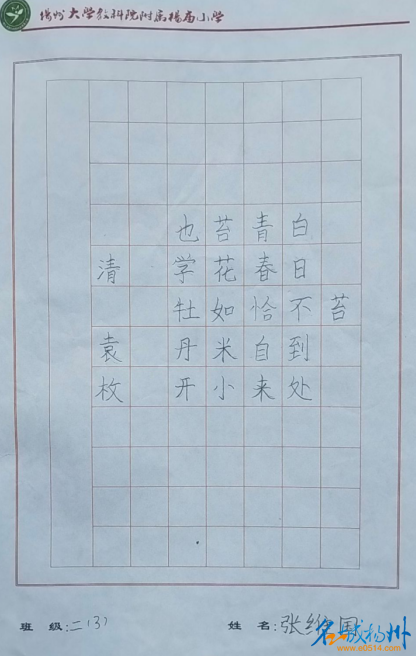 扬州大学教科院附属杨庙小学
苔
白日不到处
青春恰自来
苔花如米小
也学牡丹开
清 袁枚
班 级:二(3)
姓 名:张
名城扬州
www.e0514.com